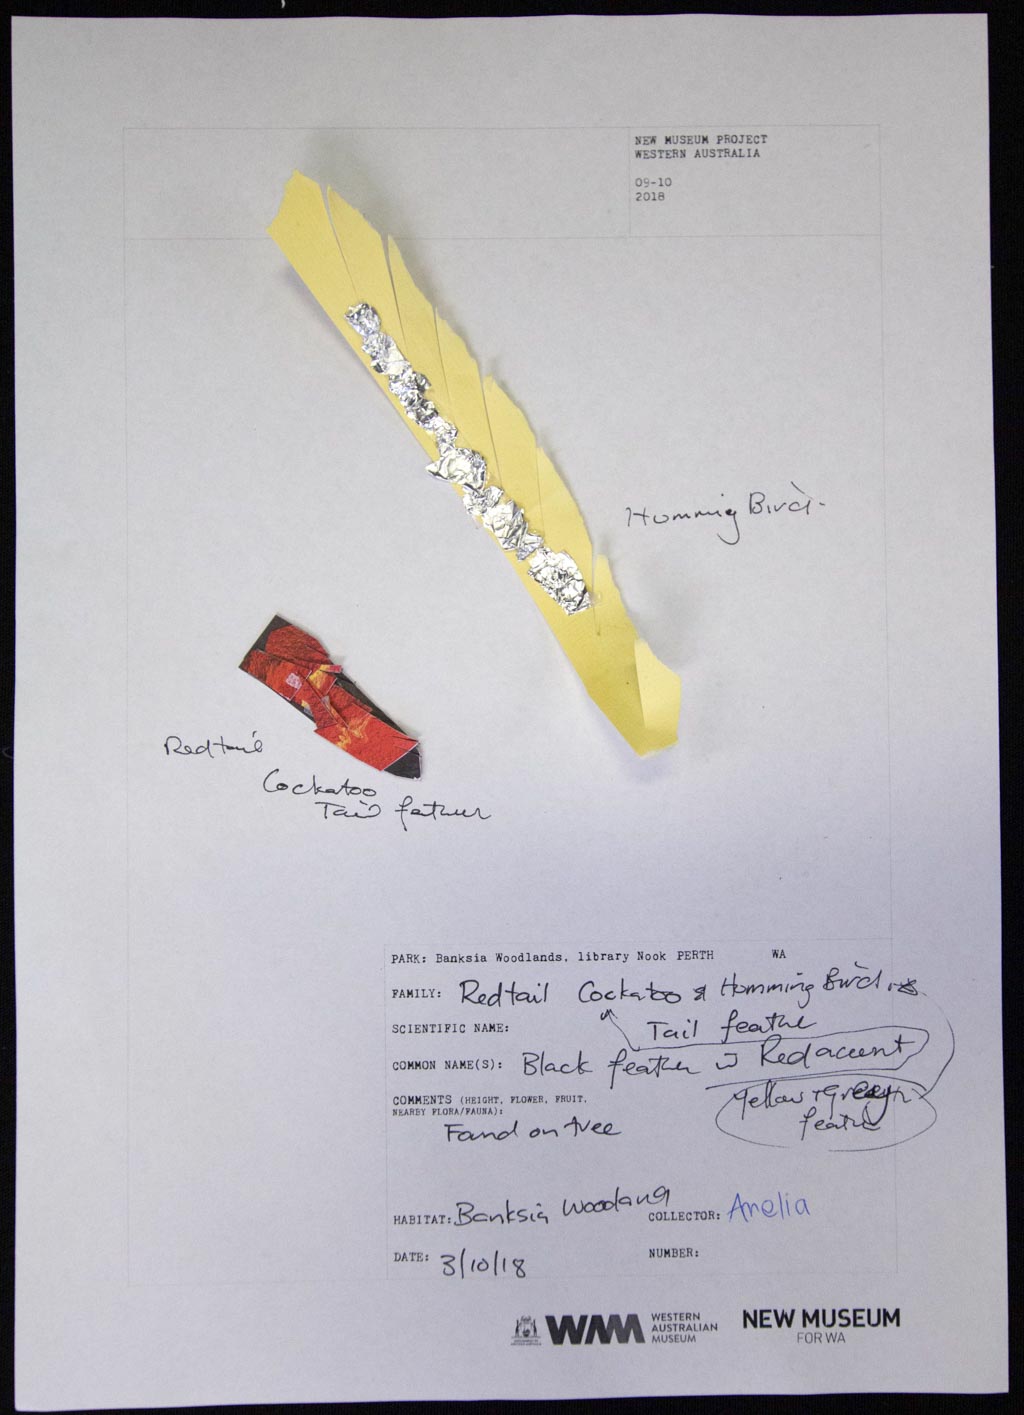 NEW MUSEUM PROJECT
WESTERN AUSTRALIA
09-10
2018
Homming Bird.
Redtail
Cockatoo
Tail feather
PARK: Banksia Woodlands, library Nook PERTH WA
FAMILY: Redtail Cockatoo & Homming Bird
Tail feathe
SCIENTIFIC NAME:
COMMON NAME(S): Black feather Red accent
COMMENTS (HEIGHT, FLOWER, FRUIT,
NEARBY FLORA/FAUNA):
yellow + Grey
feathe
Found on tree
HABITAT: Banksia Woodland
COLLECTOR: Amelia
DATE: 3/10/18
NUMBER:
WAM WESTERN
AUSTRALIAN
MUSEUM
NEW MUSEUM
FOR WA